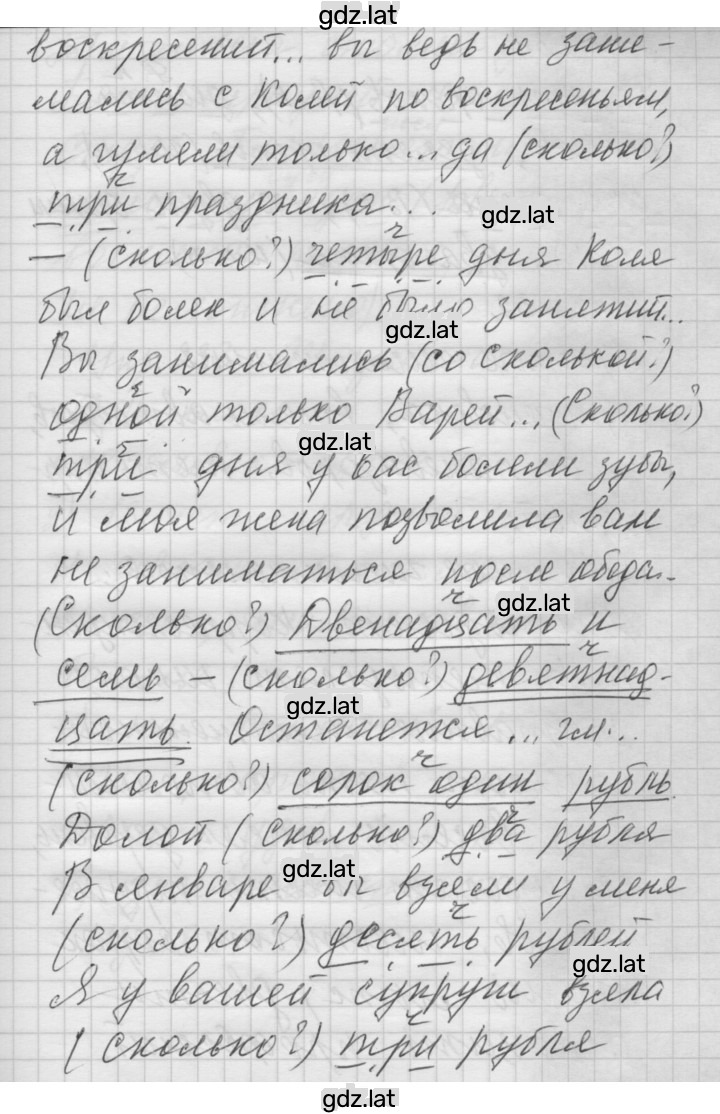 gdz.lat
воскресений... вы ведь не зани-
мались с Колей по воскресеньям,
а гуляли только... да (сколько?)
ч
три праздника...
gdz.lat
ч
— (сколько?) четыре дня Коля
был болен и не было занятий...
gdz.lat
Вы занимались (со сколькой?)
ч
одной только Варей... (Сколько?)
gdz.lat
ч
три дня у вас болели зубы,
и моя жена позволила вам
не заниматься после обеда.
ч gdz.lat
(Сколько?) Двенадцать и
ч
семь – (сколько?) девятнад-
gdz.lat
цать. Останется... гм...
ч
(сколько?) сорок один рубль.
ч
Долой (сколько?) два рубля
gdz.lat
В январе вы взяли у меня
ч
(сколько?) десять рублей
gdz.lat
Я у вашей супруги взяла
ч
(сколько?) три рубля
gdz.lat